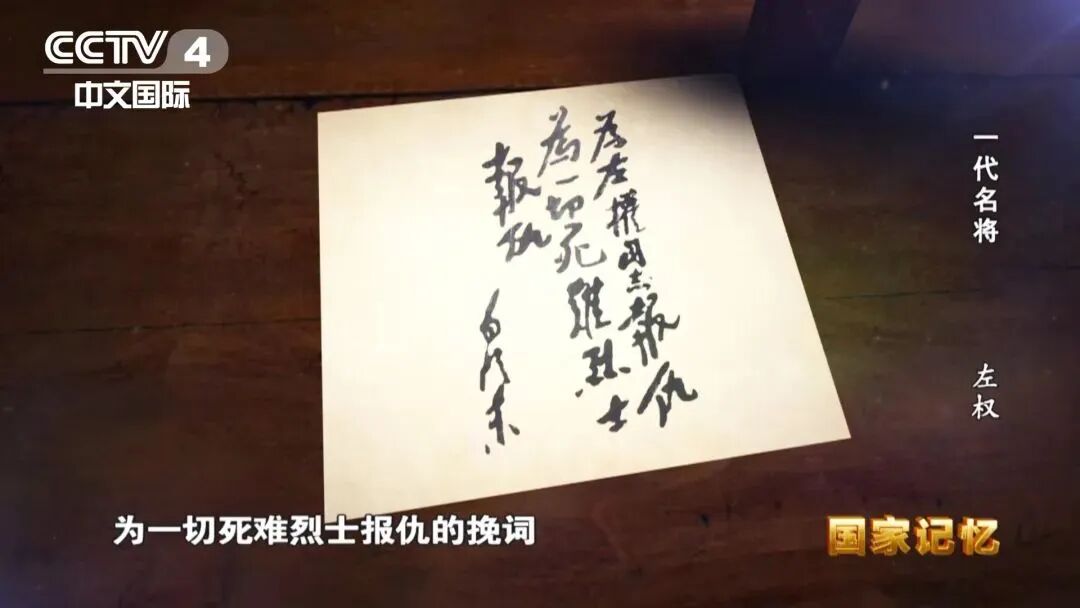 CCTV 4
中文国际
为左權同志報仇
為一切死難烈士
報仇
毛泽东
一代名将 左权
为一切死难烈士报仇的挽词
国家记忆